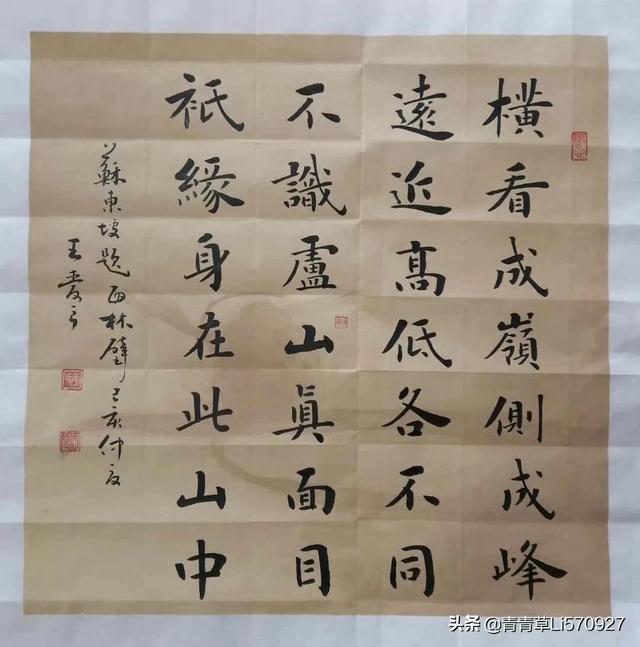 橫看成嶺側成峰
遠近髙低各不同
不識盧山眞面目
祇緣身在此山中
蘇東坡題西林壁己亥仲夏
王
头条 @青青草Li570927